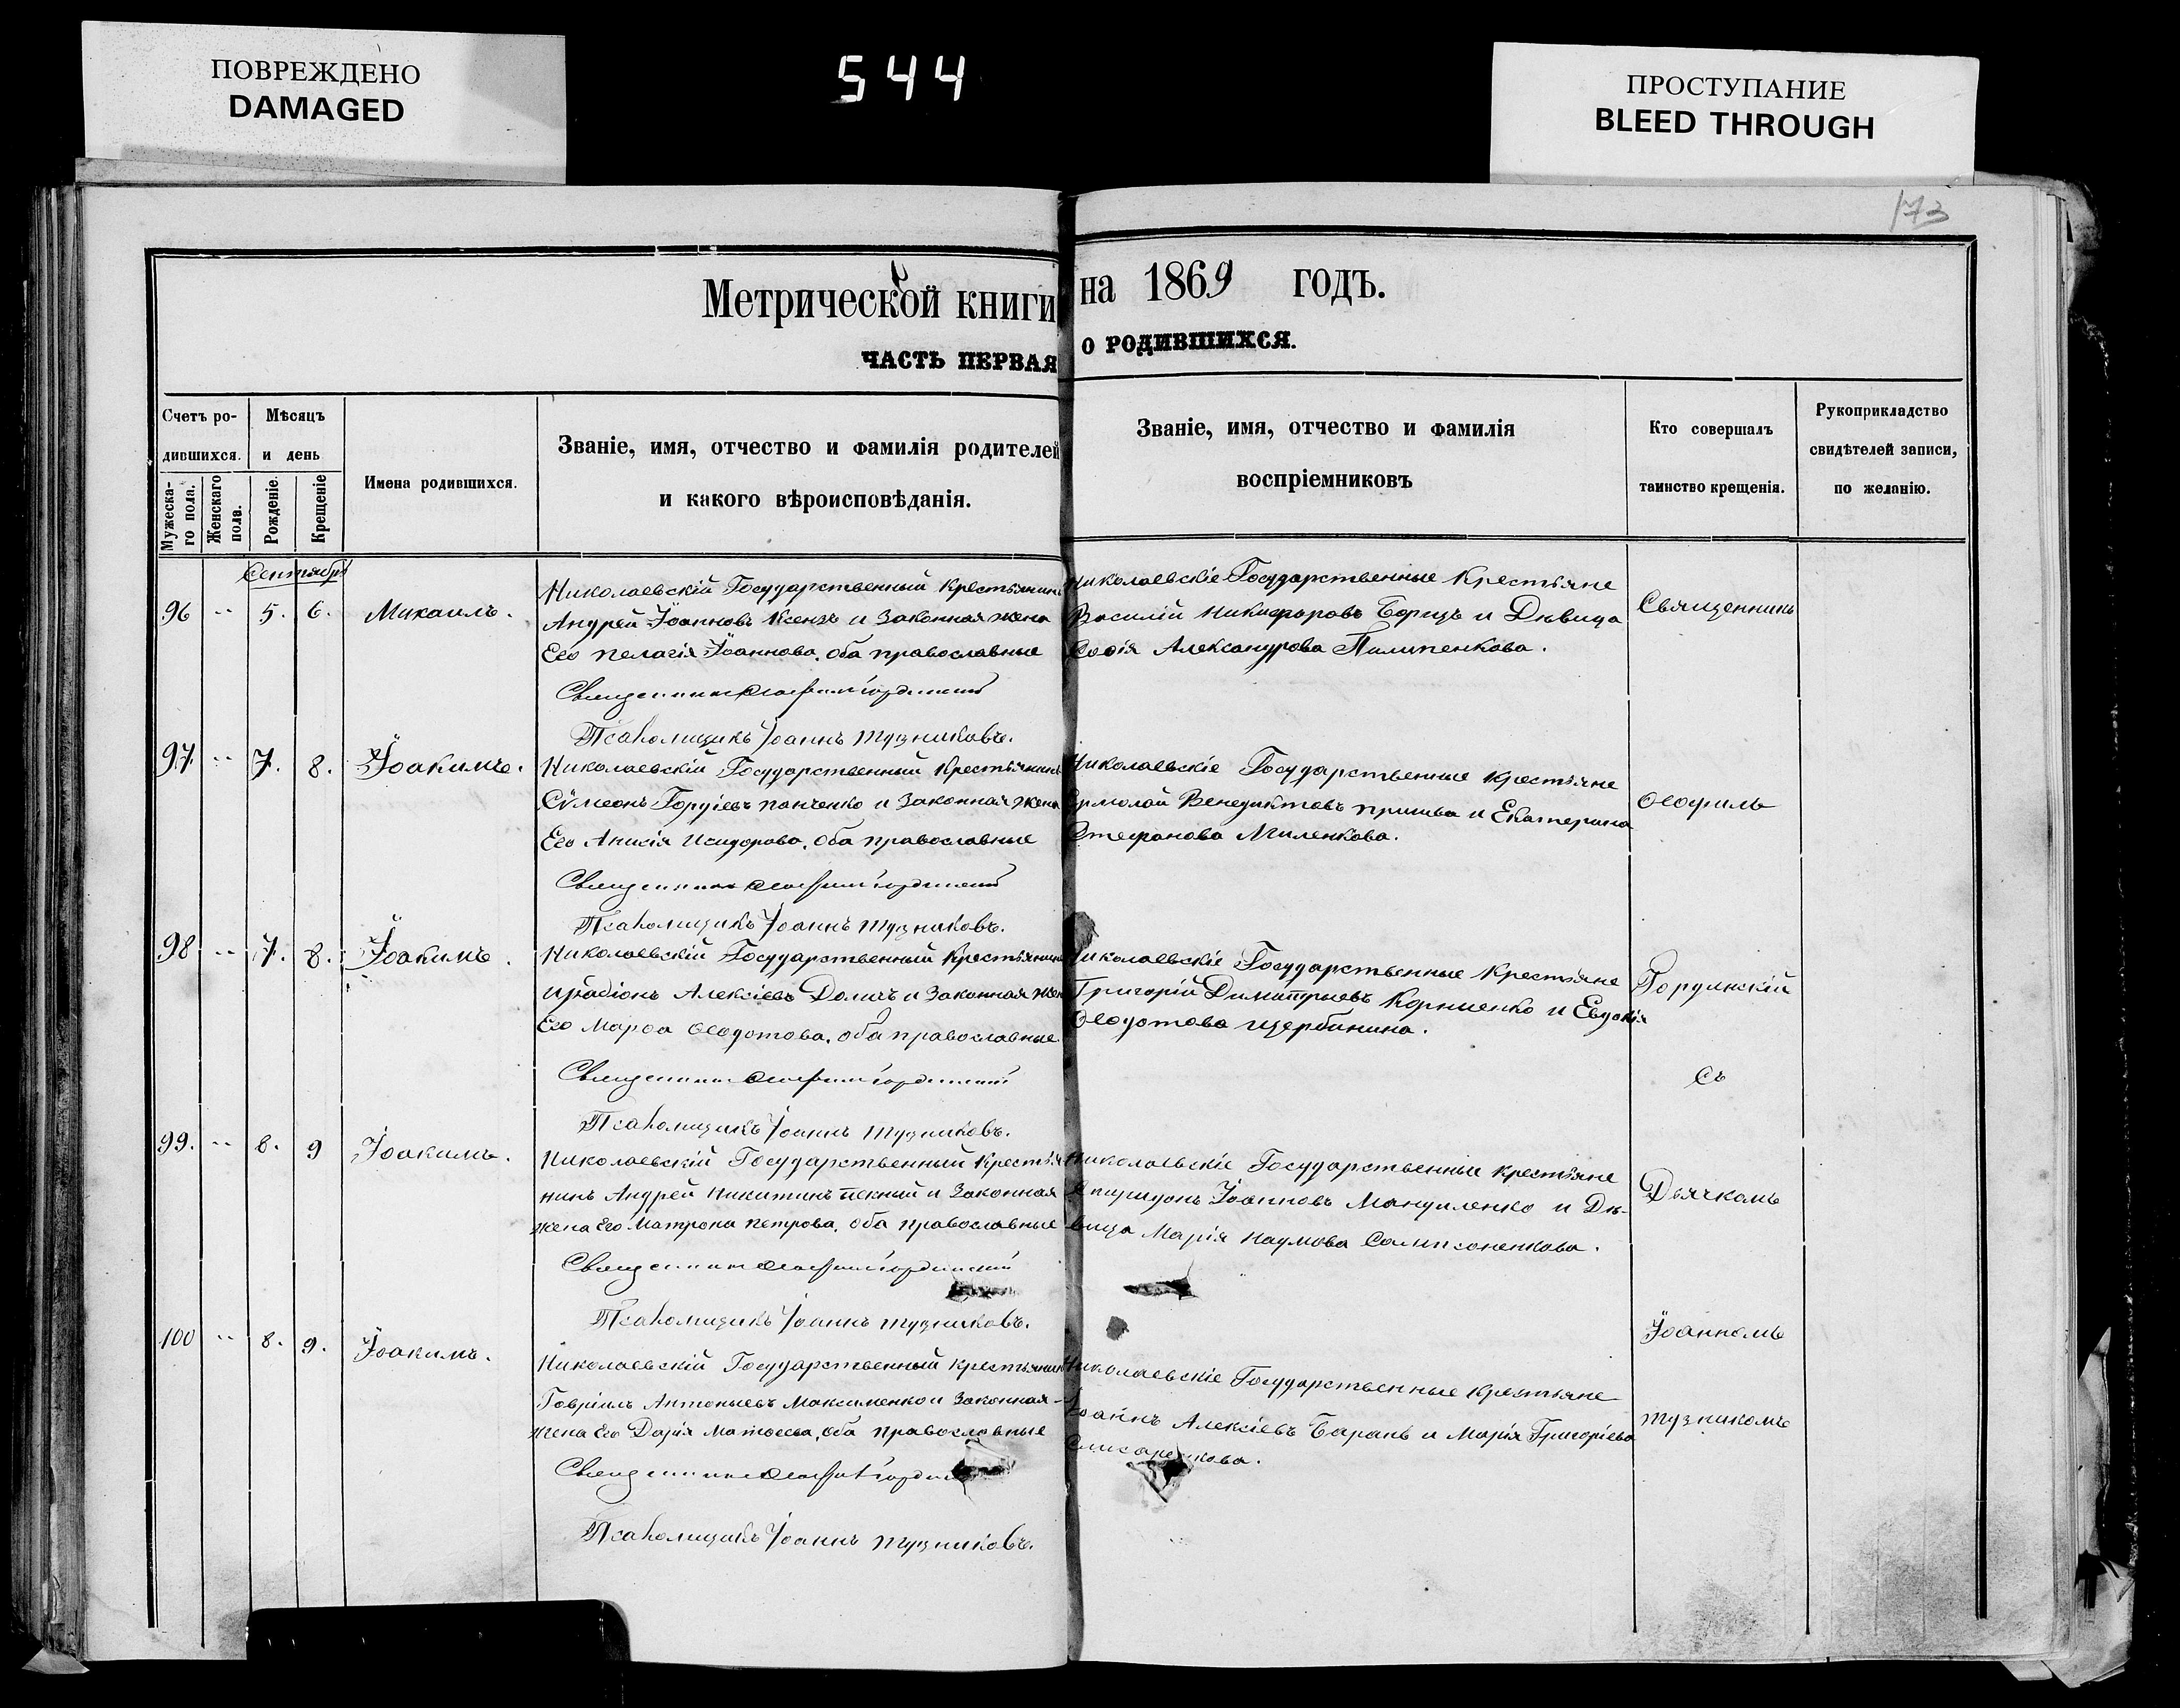 ПОВРЕЖДЕНО
DAMAGED
544
ПРОСТУПАНИЕ
BLEED THROUGH
173
Метрической книги на 1869 годъ.
ЧАСТЬ ПЕРВАЯ О РОДИВШИХСЯ.
Счетъ ро-
дившихся.
Мужеска-
го пола.
Женскаго
пола.
Мѣсяцъ
и день
Рожденіе.
Крещеніе
Имена родившихся.
Званіе, имя, отчество и фамилія родителей
и какого вѣроисповѣданія.
Званіе, имя, отчество и фамилія
воспріемниковъ
Кто совершалъ
таинство крещенія.
Рукоприкладство
свидѣтелей записи,
по желанію.
Сентябрь
96 -- 5. 6. Михаилъ.
Николаевскій Государственный Крестьянинъ
Андрей Іоанновъ Ксензъ и Законная жена
Его Пелагія Іоаннова, оба православные
Священникъ
Псаломщикъ Іоаннъ Тузниковъ.
Николаевскіе Государственные Крестьяне
Василій Никифоровъ Борищъ и Дѣвица
Софія Александрова Пилипенкова.
Священникъ
97 -- 7. 8. Іоакимъ.
Николаевскій Государственный Крестьянинъ
Сѵмеонъ Гордіевъ Панченко и Законная жена
Его Анисія Исидорова, Оба православные
Священникъ
Псаломщикъ Іоаннъ Тузниковъ.
Николаевскіе Государственные Крестьяне
Ермолай Венедиктовъ и Екатерина
Стефанова Миленкова.
Ѳеофилъ
98 -- 7. 8. Іоакимъ.
Николаевскій Государственный Крестьянинъ
Алексіевъ Долич и Законная жен
Его Марфа Ѳеодотова, оба православные.
Священникъ
Псаломщикъ Іоаннъ Тузниковъ.
Николаевскіе Государственные Крестьяне
Григорій Димитріевъ Корніенко и Евдокія
Ѳеодотова Щербинина.
Гординскій
Съ
99. -- 8. 9 Іоакимъ.
Николаевскій Государственный Крестья
нинъ Андрей Никитинъ и Законная
жена Его Матрона Петрова, оба православные
Священникъ
Псаломщикъ Іоаннъ Тузниковъ.
Николаевскіе Государственные Крестьяне
Спиридонъ Іоанновъ Мануиленко и Дѣ-
вица Марія Наумова Сампсоненкова.
Дьячкомъ
100 -- 8. 9. Іоакимъ.
Николаевскій Государственный Крестьянинъ
Гавріилъ Антоньевъ Максименко и Законная
жена Его Дарія Матфеева, оба православные
Священникъ
Псаломщикъ Іоаннъ Тузниковъ.
Николаевскіе Государственные Крестьяне
Іоаннъ Алексіевъ Баранъ и Марія Григоріева
Іоанномъ
Тузникомъ